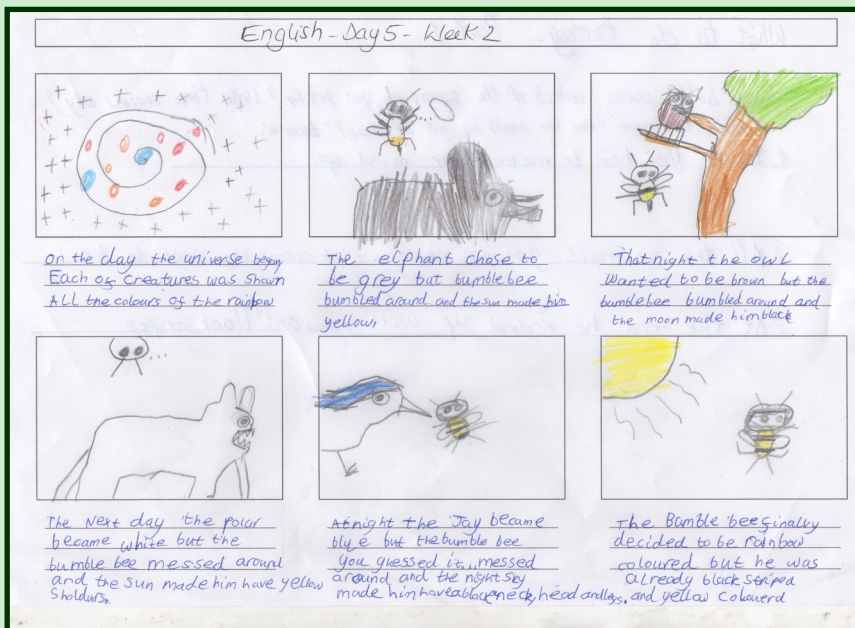 English - Day 5 - Week 2
On the day the universe began
Each of creatures was shown
All the colours of the rainbow
The elphant chose to
be grey but bumble bee
bumbled around and the sun made him
yellow.
That night the owl
wanted to be brown but the
bumblebee bumbled around and
the moon made him black
The Next day the polar
became white but the
bumble bee messed around
and the sun made him have yellow
sholdurs.
At night the Jay became
blye but the bumble bee
You guessed it... messed
around and the night sky
made him have a black neck, head and legs.
The Bumble bee finally
decided to be rainbow
coloured but he was
already black striped
and yellow colouerd